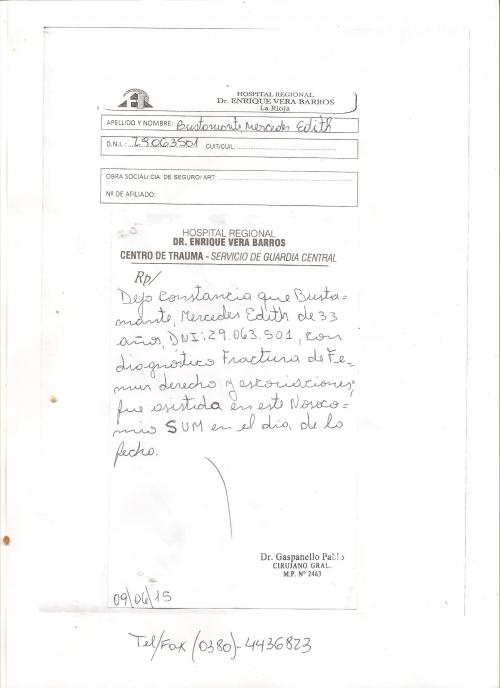 HOSPITAL REGIONAL
Dr. ENRIQUE VERA BARROS
La Rioja
APELLIDO Y NOMBRE: Bustamante, Mercedes Edith
D.N.I.: 29.063501 CUIT/CUIL:
OBRA SOCIAL/ CIA. DE SEGURO/ ART:
Nº DE AFILIADO:
HOSPITAL REGIONAL
DR. ENRIQUE VERA BARROS
CENTRO DE TRAUMA - SERVICIO DE GUARDIA CENTRAL
Rp/
Dejo Constancia que Busta=
mante, Mercedes Edith de 33
años, DNI: 29.063.501, con
diagnóstico Fractura de Fe=
mur derecho y escoriaciones,
fue asistida en este Nosoco=
mio SUM en el día de la
fecha.
Dr. Gaspanello Pablo
CIRUJANO GRAL.
M.P. Nº 2463
09/06/15
Tel/Fax (0380)-4436823